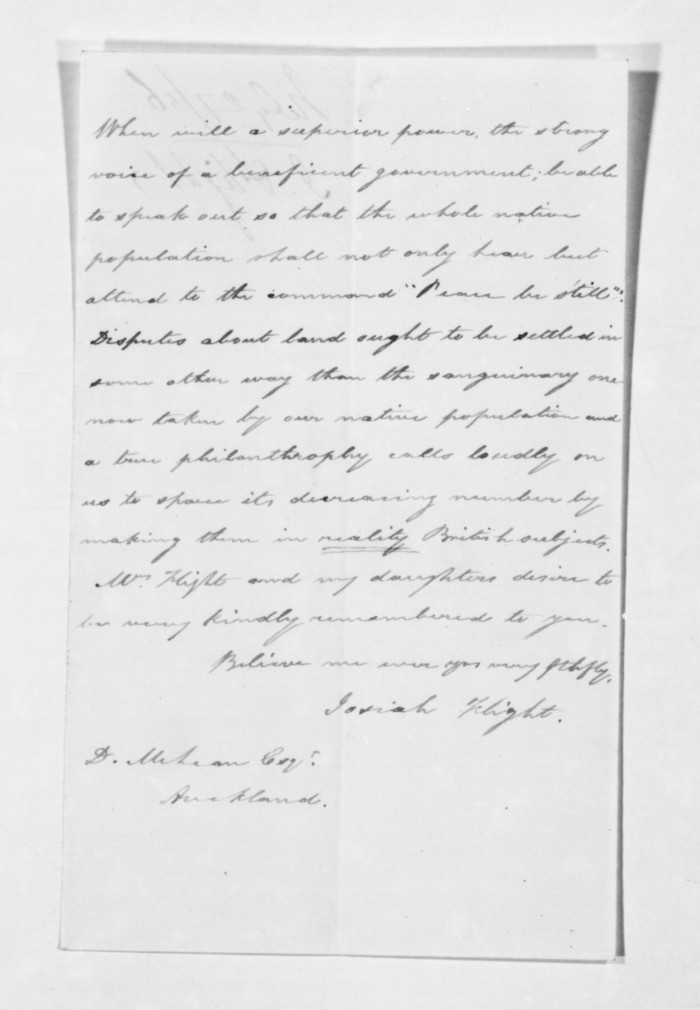 When will a superior power, the strong
voice of a beneficent government; be able
to speak out so that the whole native
population shall not only hear but
attend to the command "Peace be still".
Disputes about land ought to be settled in
some other way than the sanguinary one
now taken by our native population and
a true philanthropy calls loudly on
us to spare its decreasing number by
making them in reality British subjects.
Mrs Flight and my daughters desire to
be very kindly remembered to you.
Believe me ever yrs very fthfly.
Josiah Flight.
D. McLean Esqr.
Auckland.